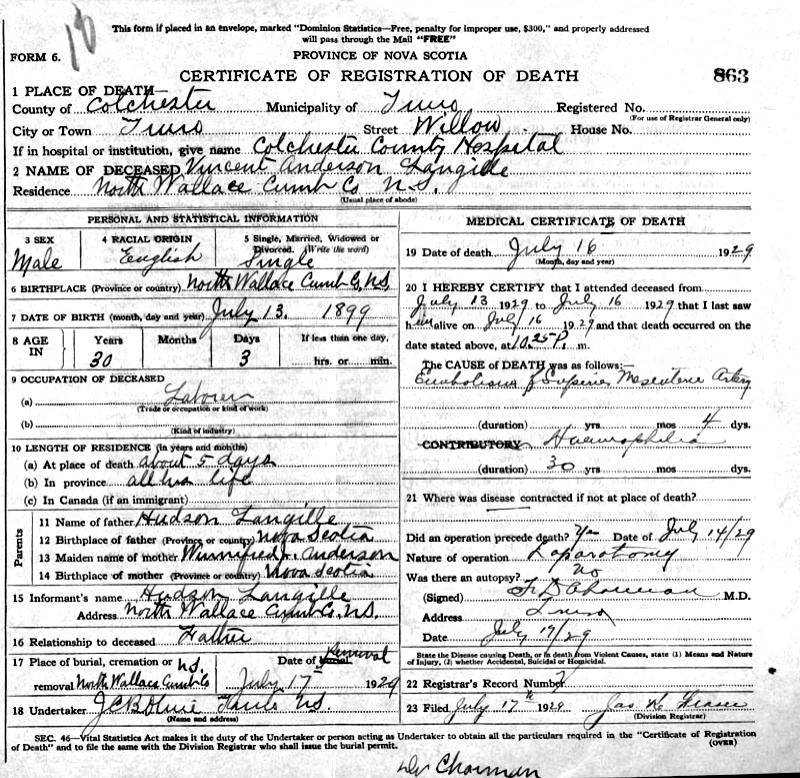 18
This form if placed in an envelope, marked "Dominion Statistics—Free, penalty for improper use, $300," and properly addressed
will pass through the Mail "FREE"
FORM 6.
PROVINCE OF NOVA SCOTIA
CERTIFICATE OF REGISTRATION OF DEATH
863
1 PLACE OF DEATH—
County of Colchester Municipality of Truro Registered No.
(For use of Registrar General only)
City or Town Truro Street Willow House No.
If in hospital or institution, give name Colchester County Hospital
2 NAME OF DECEASED Vincent Anderson Langille
Residence North Wallace Cumb Co N.S.
(Usual place of abode)
PERSONAL AND STATISTICAL INFORMATION
3 SEX 4 RACIAL ORIGIN 5 Single, Married, Widowed or
Divorced. (Write the word)
Male English Single
6 BIRTHPLACE (Province or country) North Wallace Cumb Co, N.S.
7 DATE OF BIRTH (month, day and year) July 13. 1899
8 AGE IN Years Months Days If less than one day,
30 3 hrs. or min.
9 OCCUPATION OF DECEASED
(a) Laborer
(Trade or occupation or kind of work)
(b)
(Kind of industry)
10 LENGTH OF RESIDENCE (In years and months)
(a) At place of death about 5 days
(b) In province all his life
(c) In Canada (if an immigrant)
Parents
11 Name of father Hudson Langille
12 Birthplace of father (Province or country) Nova Scotia
13 Maiden name of mother Winnifred J. Anderson
14 Birthplace of mother (Province or country) Nova Scotia
15 Informant's name Hudson Langille
Address North Wallace Cumb Co. N.S.
16 Relationship to deceased Father
17 Place of burial, cremation or N.S. Date of burial Removal
removal North Wallace Cumb Co July 17 1929
18 Undertaker N.S.
(Name and address)
MEDICAL CERTIFICATE OF DEATH
19 Date of death July 16 1929
(Month, day and year)
20 I HEREBY CERTIFY that I attended deceased from
July 13 1929 to July 16 1929 that I last saw
him alive on July 16 1929 and that death occurred on the
date stated above, at 10.25 P. m.
The CAUSE OF DEATH was as follows:—
Embolism of Superior Mesenteric Artery
(duration) yrs. mos 4 dys.
CONTRIBUTORY Haemophilia
(duration) 30 yrs mos dys.
21 Where was disease contracted if not at place of death?
Did an operation precede death? Yes Date of July 14/29
Nature of operation Laparotomy
Was there an autopsy? no
(Signed) M.D.
Address Truro
Date July 17/29
State the Disease causing Death, or in death from Violent Causes, state (1) Means and Nature
of Injury, (2) whether Accidental, Suicidal or Homicidal.
22 Registrar's Record Number
23 Filed July 17th 1929
(Division Registrar)
SEC. 46—Vital Statistics Act makes it the duty of the Undertaker or person acting as Undertaker to obtain all the particulars required in the "Certificate of Registration
of Death" and to file the same with the Division Registrar who shall issue the burial permit.
(OVER)
Dr Chorman